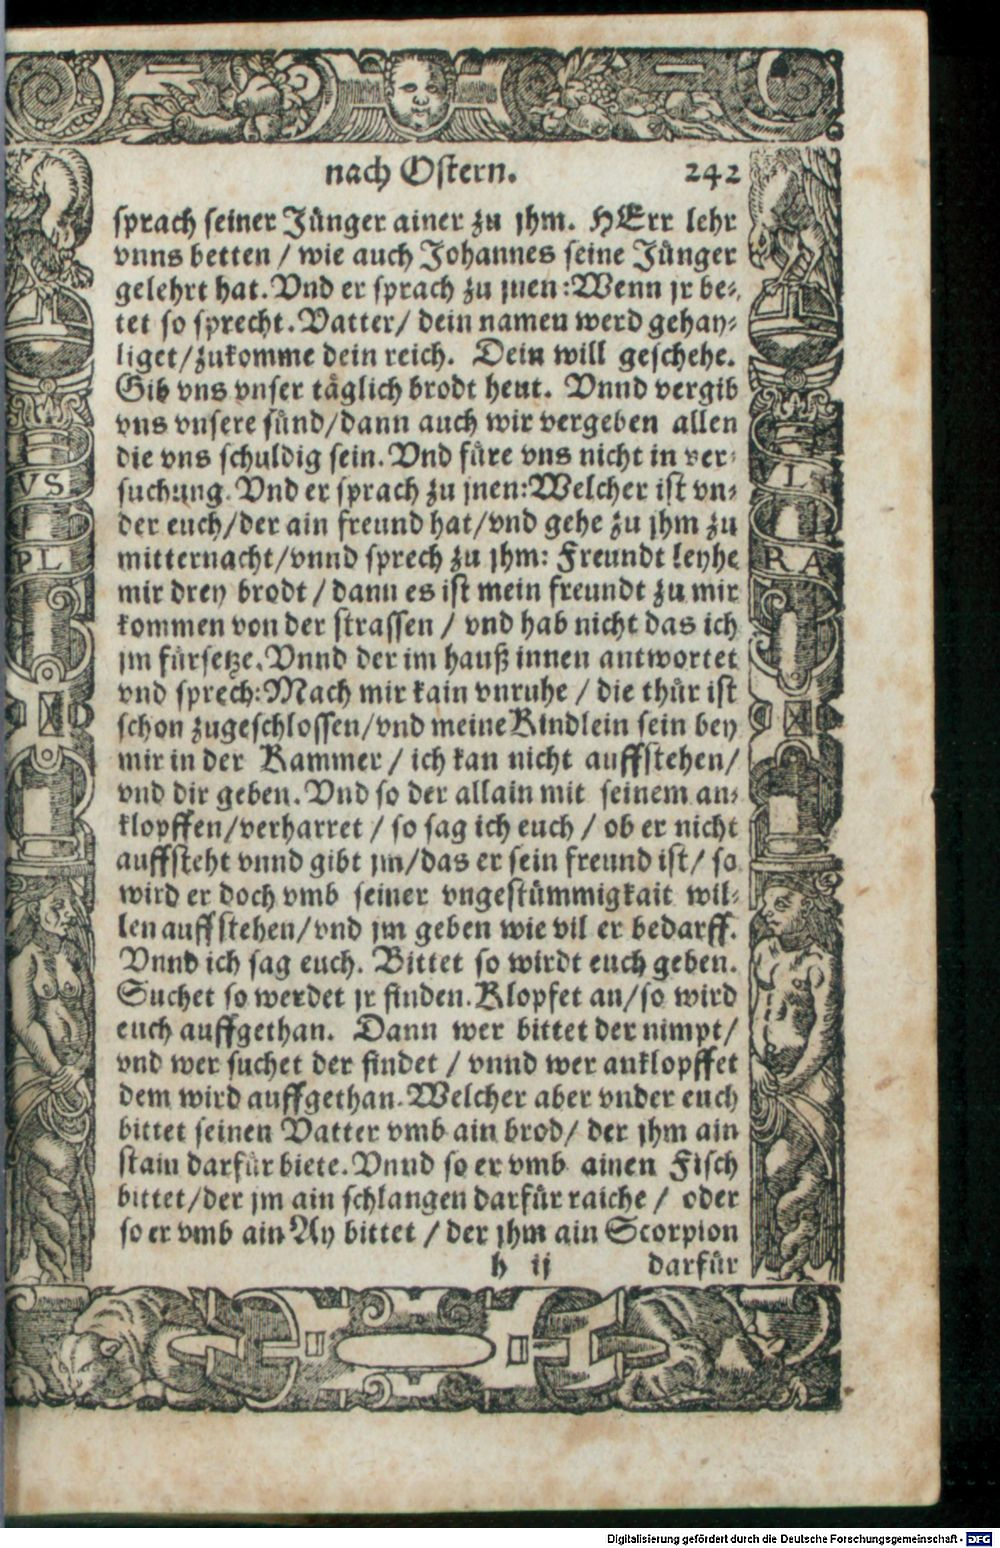 nach Ostern. 242
sprach seiner Jünger ainer zu jhm. HErr lehr
vnns betten / wie auch Johannes seine Jünger
gelehrt hat. Vnd er sprach zu jnen: Wenn jr be⸗
tet so sprecht. Vatter/ dein namen werd gehay⸗
liget/zukomme dein reich. Dein will geschehe.
Gib vns vnser täglich brodt heut. Vnnd vergib
vns vnsere sünd/dann auch wir vergeben allen
die vns schuldig sein. Vnd füre vns nicht in ver⸗
suchung. Vnd er sprach zu jnen: Welcher ist vn⸗
der euch/der ain freund hat/vnd gehe zu jhm zu
mitternacht/vnnd sprech zu jhm: Freundt leyhe
mir drey brodt / dann es ist mein freundt zu mir
kommen von der strassen / vnd hab nicht das ich
jm fürsetze. Vnnd der im hauß innen antwortet
vnd sprech: Mach mir kain vnruhe / die thür ist
schon zugeschlossen/vnd meine Kindlein sein bey
mir in der Kammer / ich kan nicht auffstehen/
vnd dir geben. Vnd so der allain mit seinem an⸗
klopffen/verharret / so sag ich euch / ob er nicht
auffsteht vnnd gibt jm/das er sein freund ist/ so
wird er doch vmb seiner vngestümmigkait wil⸗
len auffstehen/vnd jm geben wie vil er bedarff.
Vnnd ich sag euch. Bittet so wirdt euch geben.
Suchet so werdet jr finden. Klopfet an/so wird
euch auffgethan. Dann wer bittet der nimpt/
vnd wer suchet der findet / vnnd wer anklopffet
dem wird auffgethan. Welcher aber vnder euch
bittet seinen Vatter vmb ain brod/ der jhm ain
stain darfür biete. Vnnd so er vmb ainen Fisch
bittet/der jm ain schlangen darfür raiche / oder
so er vmb ain Ay bittet / der jhm ain Scorpion
h ij darfür
VS
PL
VL
RA
Digitalisierung gefördert durch die Deutsche Forschungsgemeinschaft - DFG